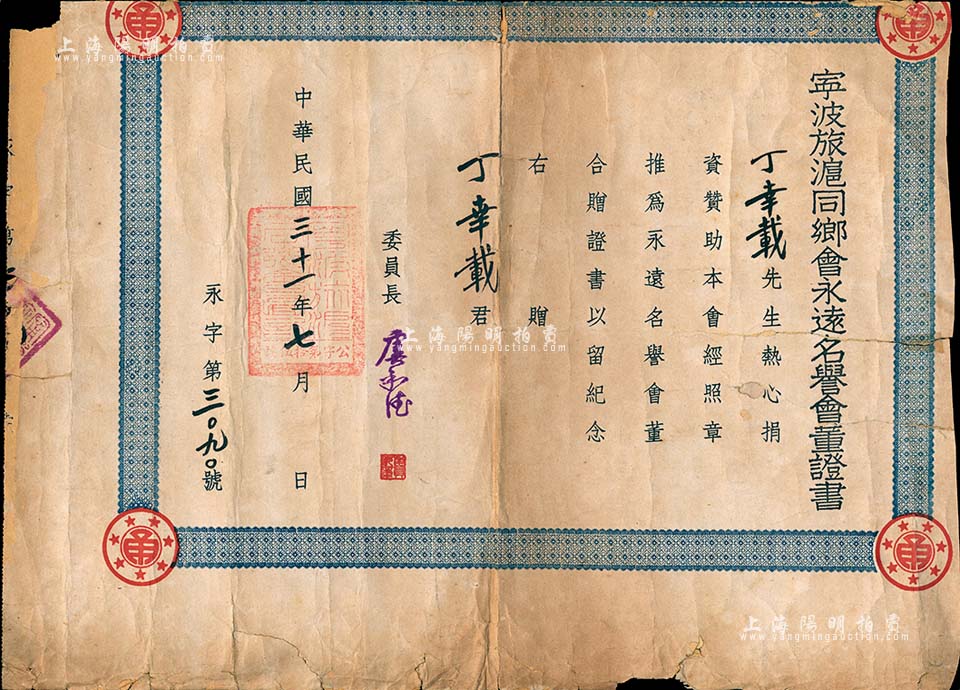 寧波旅滬同鄉會永遠名譽會董證書
丁幸載先生熱心捐
資贊助本會經照章
推爲永遠名譽會董
合贈證書以留紀念
右贈
丁幸載君
委員長
中華民國三十一年七月 日
永字第三〇九〇號
上海陽明拍賣
www.yangmingauction.com
上海陽明拍賣
www.yangmingauction.com
上海陽明拍賣
www.yangmingauction.com